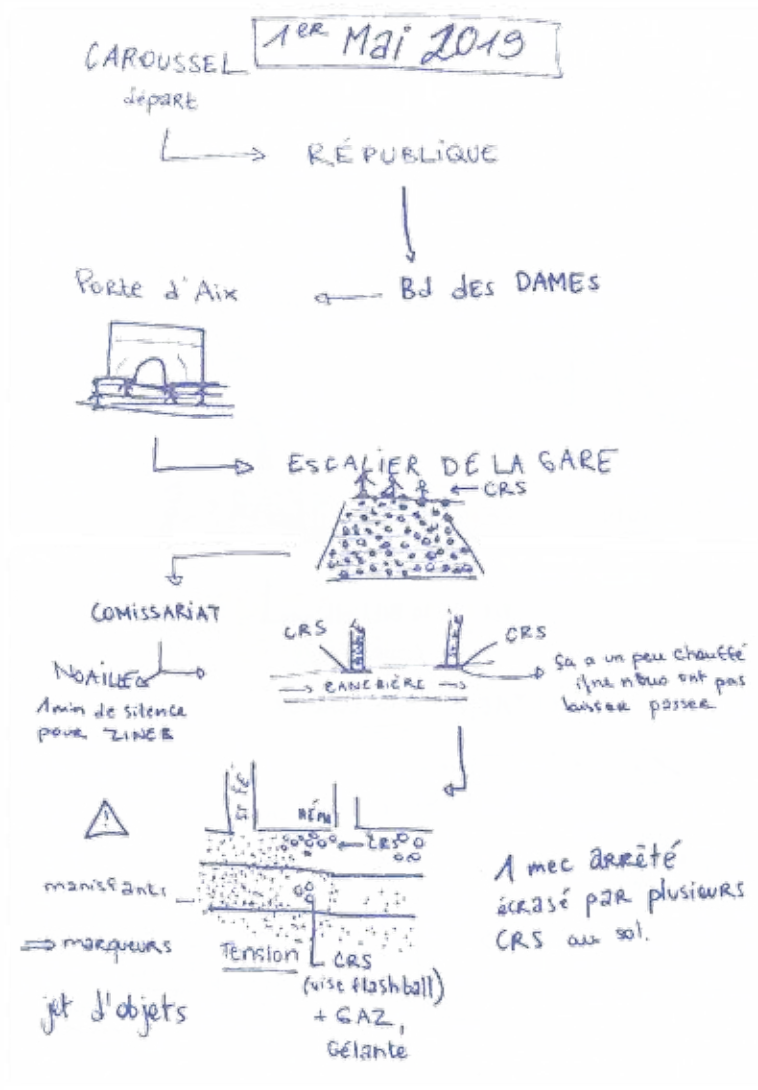 1ER Mai 2019
CAROUSSEL
départ
RÉPUBLIQUE
Bd dES DAMES
Porte d'Aix
ESCALIER DE LA GARE
CRS
COMISSARIAT
NOAILLES
1 min de silence
pour ZINEB
CRS
CRS
CANEBIÈRE
Sa a un peu chauffé
ils ne nous ont pas
laisser passer
ST FÉ
RÉPU
CRS
manisfants
marqueurs
jet d'objets
Tension
CRS
(vise flashball)
+ GAZ,
Gélante
1 mec arrêté
écrasé par plusieurs
CRS au sol.